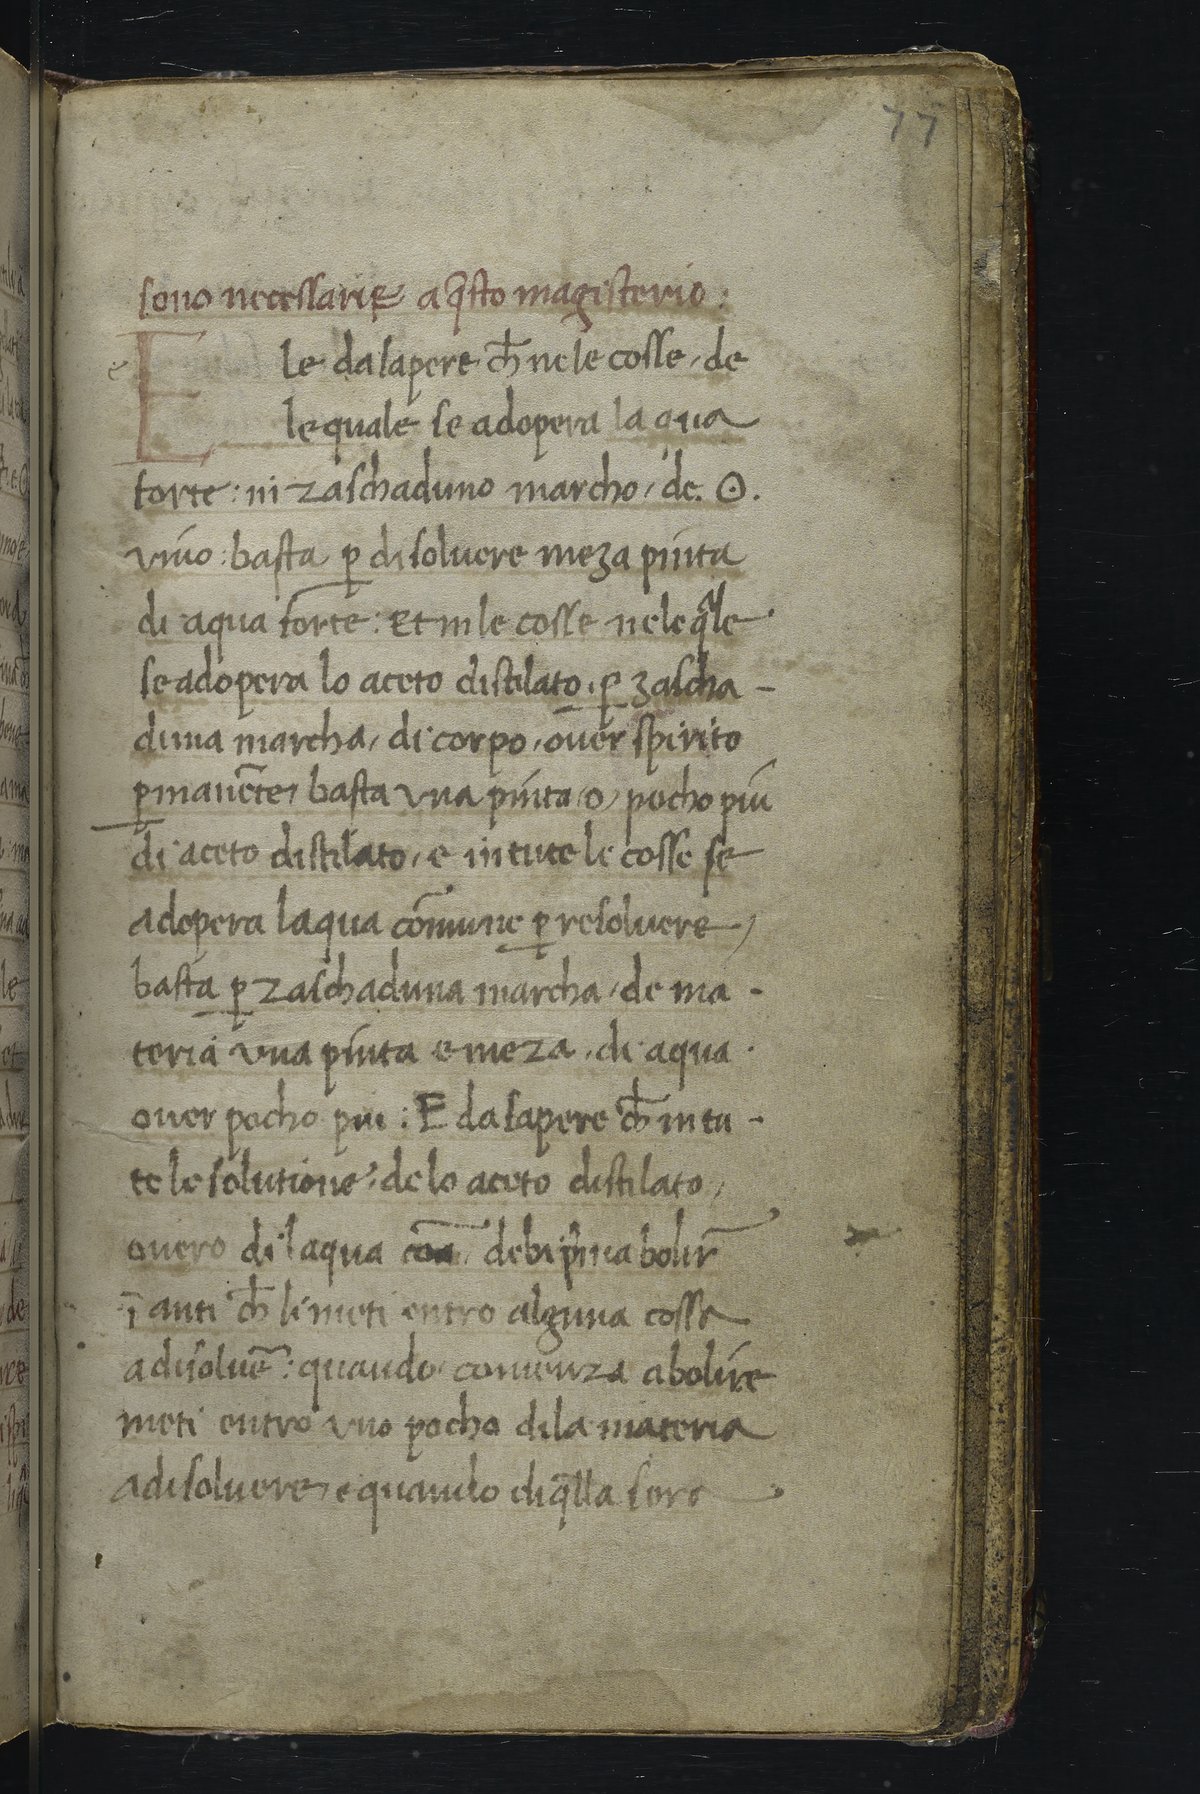 77
sono necessarie a q̃sto magisterio:
E le da sapere ch̄ ne le cosse, de
le quale se adopera la qua
forte: in zaschaduno marcho, de. ☉.
vivo: basta ꝑ disolvere meza pinta
di aqua forte: Et in le cosse ne le q̃le
se adopera lo aceto distilato, ꝑ zascha-
duna marcha, di corpo, over spirito
ꝑmanẽte, basta vna pinta, o, pocho piu
di aceto distilato, e in tute le cosse se
adopera laqua com̄une ꝑ resolvere,
basta ꝑ zaschaduna marcha, de ma-
teria vna pinta e meza, di aqua.
over pocho piu: E da sapere ch̄ in tu-
te le solutione, de lo aceto distilato,
overo di laqua cõa, debi p̃ma bolir̃
ī anti ch̄ li meti entro alguna cossa
a disolvẽ: quando comenza a bolire
meti entro vno pocho di la materia
a disolvere, e quando di q̃lla sera